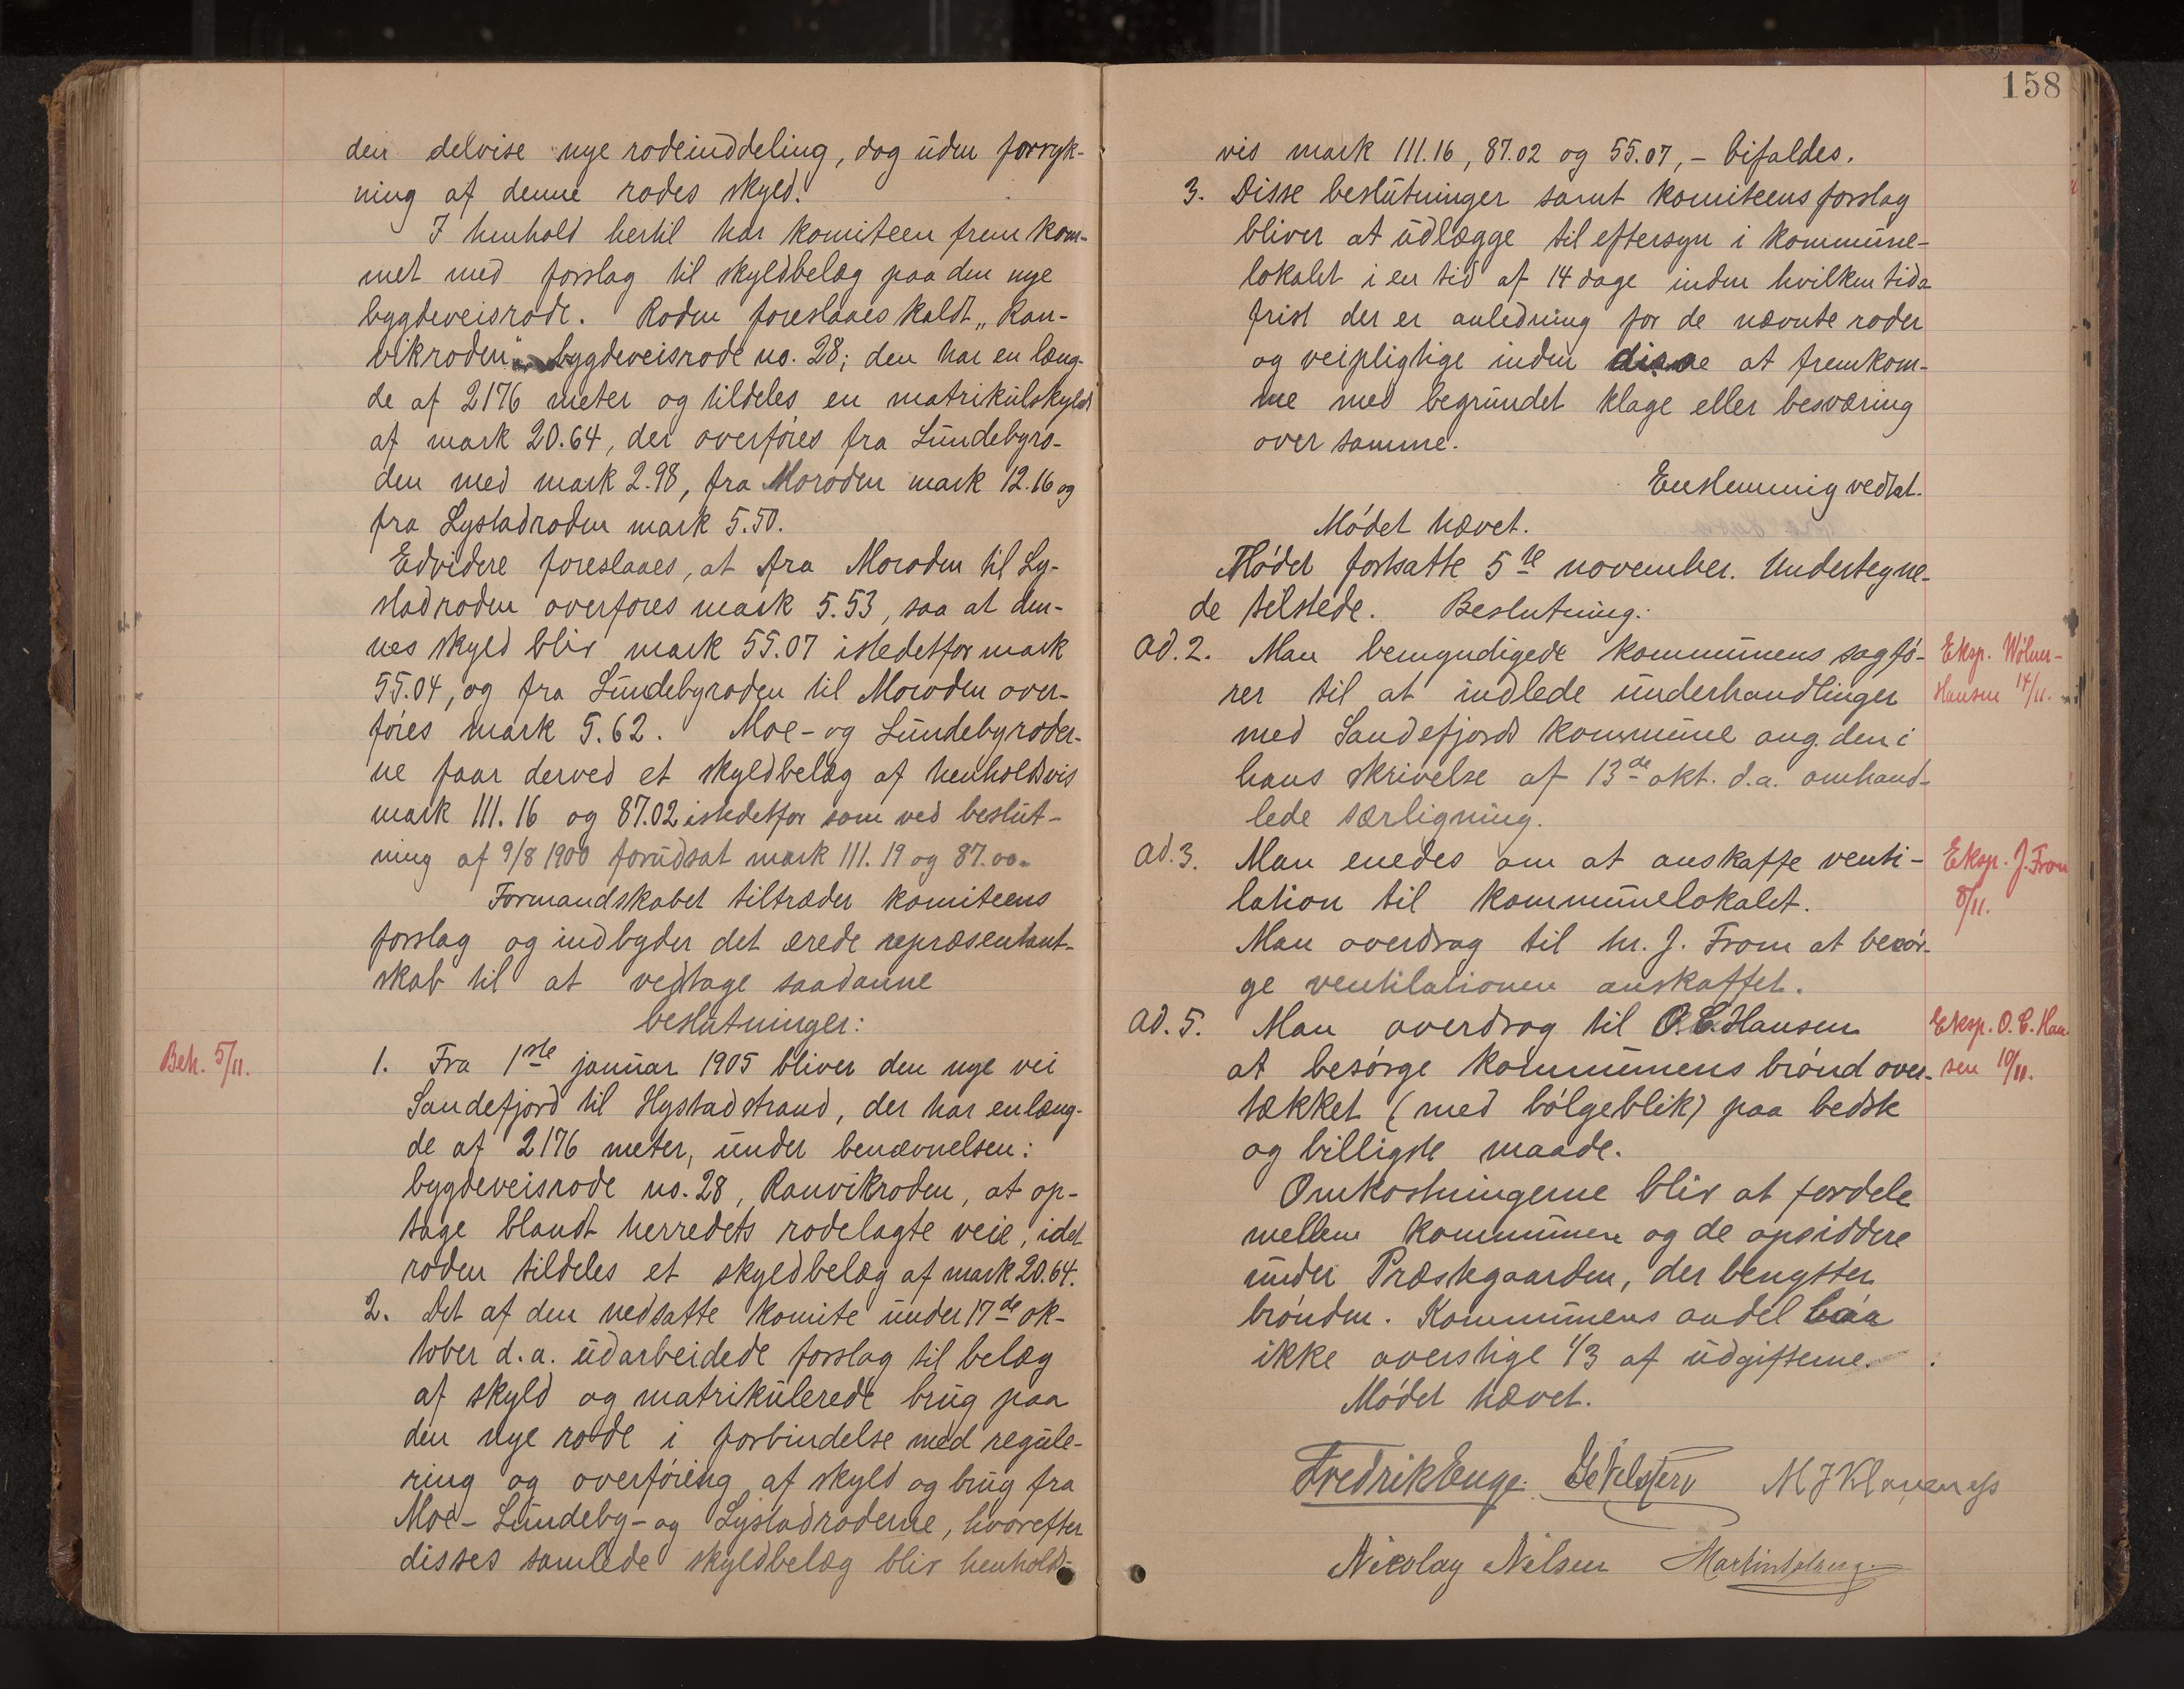 den delvise nye rodeinddeling, dog uden forryk-
ning af denne rodes skyld.
I henhold hertil har komiteen fremkom-
met med forslag til skyldbelæg paa den nye
bygdeveisrode. Roden foreslaaes kaldt „Ran-
vikroden" bygdeveisrode no. 28; den har en læng-
de af 2176 meter og tildeles en matrikulskyld
af mark 20.64, der overføres fra Lundebyro-
den med mark 2.98, fra Moroden mark 12.16 og
fra Lystadroden mark 5.50.
Edvidere foreslaaes, at fra Moroden til Ly-
stadroden overføres mark 5.53, saa at den-
nes skyld blir mark 55.07 istedetfor mark
55.04, og fra Lundebyroden til Moroden over-
føres mark 5.62. Moe- og Lundebyroder-
ne faar derved et skyldbelæg af henholdsvis
mark 111.16 og 87.02 istedetfor som ved beslut-
ning af 9/8 1900 forudsat mark 111.19 og 87.00.
Formandskabet tiltræder komiteens
forslag og indbyder det ærede repræsentant-
skab til at vedtage saadanne
beslutninger:
Beh. 5/11.
1. Fra 1ste januar 1905 bliver den nye vei
Sandefjord til Hystadstrand, der har en læng-
de af 2176 meter, under benævnelsen:
bygdeveisrode no. 28, Ranvikroden, at op-
tage blandt herredets rodelagte veie, idet
roden tildeles et skyldbelæg af mark 20.64.
2. Det af den nedsatte komite under 17de ok-
tober d.a. udarbeidede forslag til belæg
af skyld og matrikulerede brug paa
den nye rode i forbindelse med regule-
ring og overføring af skyld og brug fra
Moe- Lundeby- og Lystadroderne, hvorefter
disses samlede skyldbelæg blir henholds-
158
vis mark 111.16, 87.02 og 55.07, - bifaldes.
3. Disse beslutninger samt komiteens forslag
bliver at udlægge til eftersyn i kommune-
lokalet i en tid af 14 dage inden hvilken tids
frist der er anledning for de nævnte roder
og veipligtige inden disse at fremkom-
me med begrundet klage eller besværing
over samme.
Enstemmig vedtat.
Mødet hævet.
Mødet fortsatte 5te november. Undertegne-
de tilstede. Beslutning:
ad. 2. Man bemyndigede kommunens sagfø-
rer til at indlede underhandlinger
med Sandefjords kommune ang. den i
hans skrivelse af 13de okt. d.a. omhand-
lede særligning.
Eksp. Wølner-
Hansen 14/11.
ad. 3. Man enedes om at anskaffe venti-
lation til kommunelokalet.
Man overdrog til hr. J. From at besør-
ge ventilationen anskaffet.
Eksp. J. From
8/11.
ad. 5. Man overdrog til O. C. Hansen
at besørge kommunens brønd over-
tækket (med bølgeblik) paa bedste
og billigste maade.
Eksp. O. C. Han
sen 10/11.
Omkostningerne blir at fordele
mellem kommunen og de opsiddere
under Præstegaarden, der benytter
brønden. Kommunens andel maa
ikke overstige 1/3 af udgifterne.
Mødet hævet.
Fredrik Enge. M J Klaveness
Nicolay Nilsen